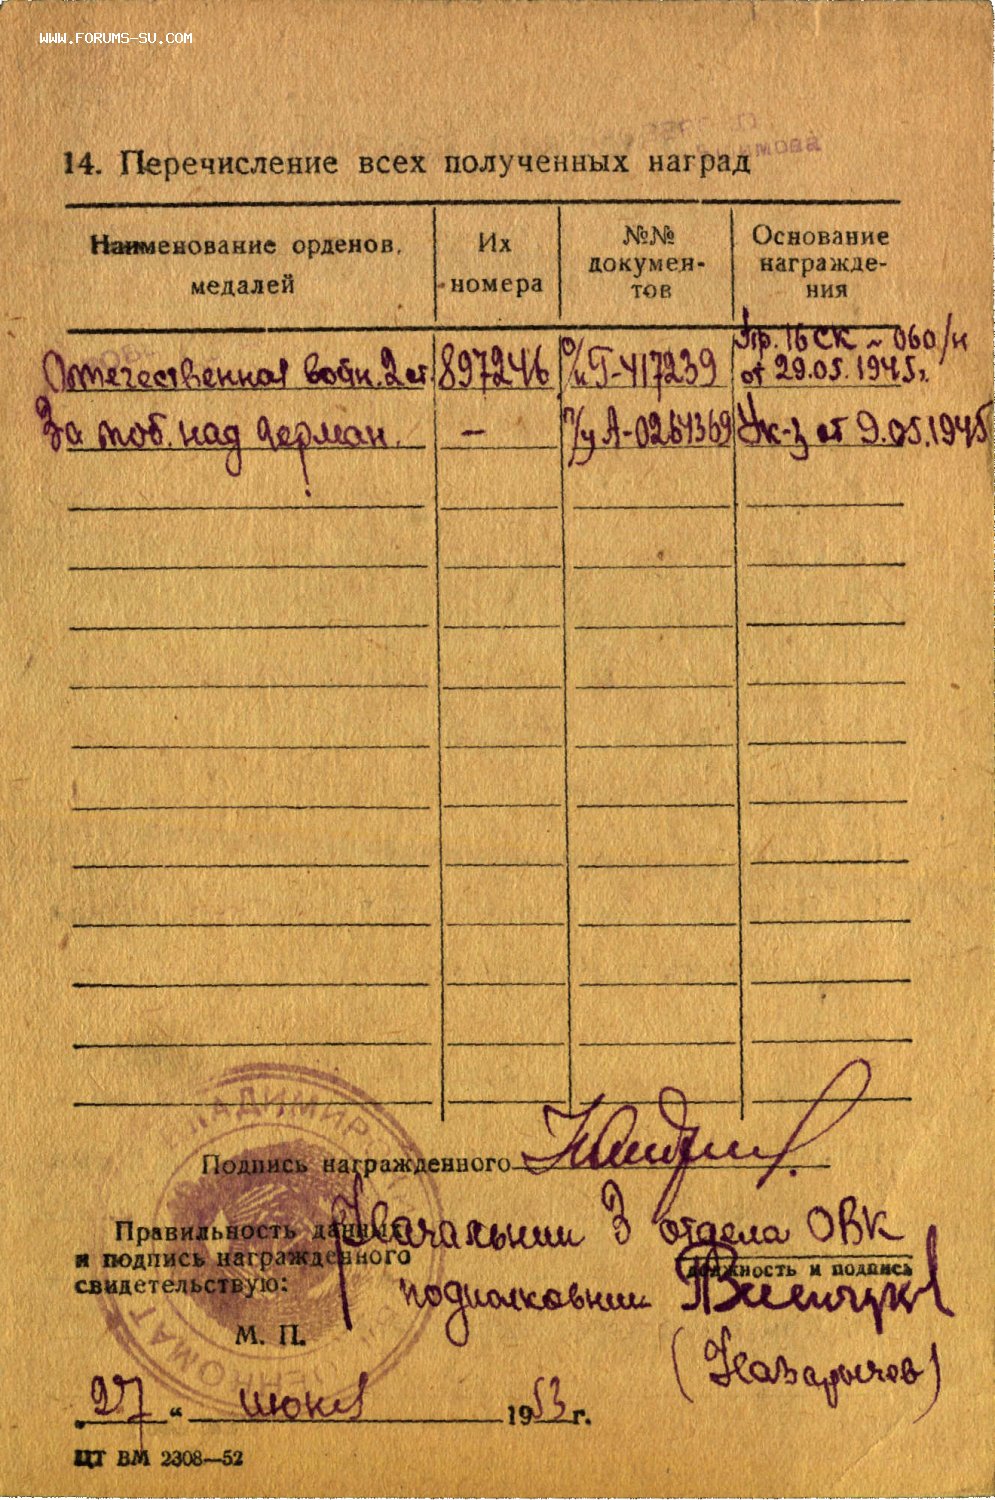 WWW.FORUMS-SU.COM
14. Перечисление всех полученных наград
Наименование орденов, медалей
Их номера
№№ докумен-тов
Основание награжде-ния
Отечественная войн. 2 ст. 897246 о/к Г-417239 Пр. 16 СК ~ 060/н от 29.05.1945г.
За поб. над герман. — А-0261369 Ук-з от 9.05.1945
Подпись награжденного
Правильность данных
Начальник 3 отдела ОВК
и подпись награжденного
должность и подпись
свидетельствую:
подполковник
М. П.
„27“ июня 1953 г.
ЦТ ВМ 2308—52
ВЛАДИМИРСКИЙ
ВОЕНКОМАТ